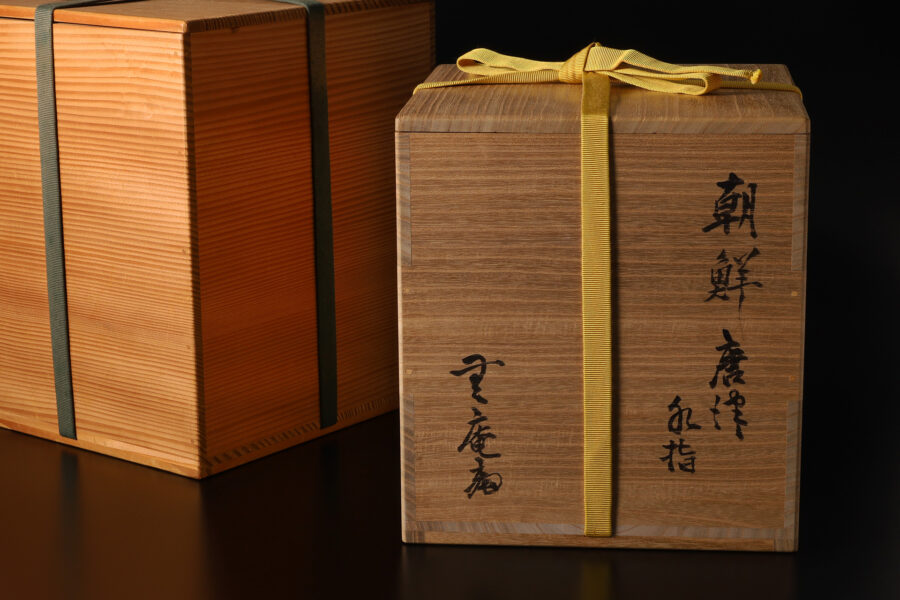 朝鮮唐津
水指
無庵